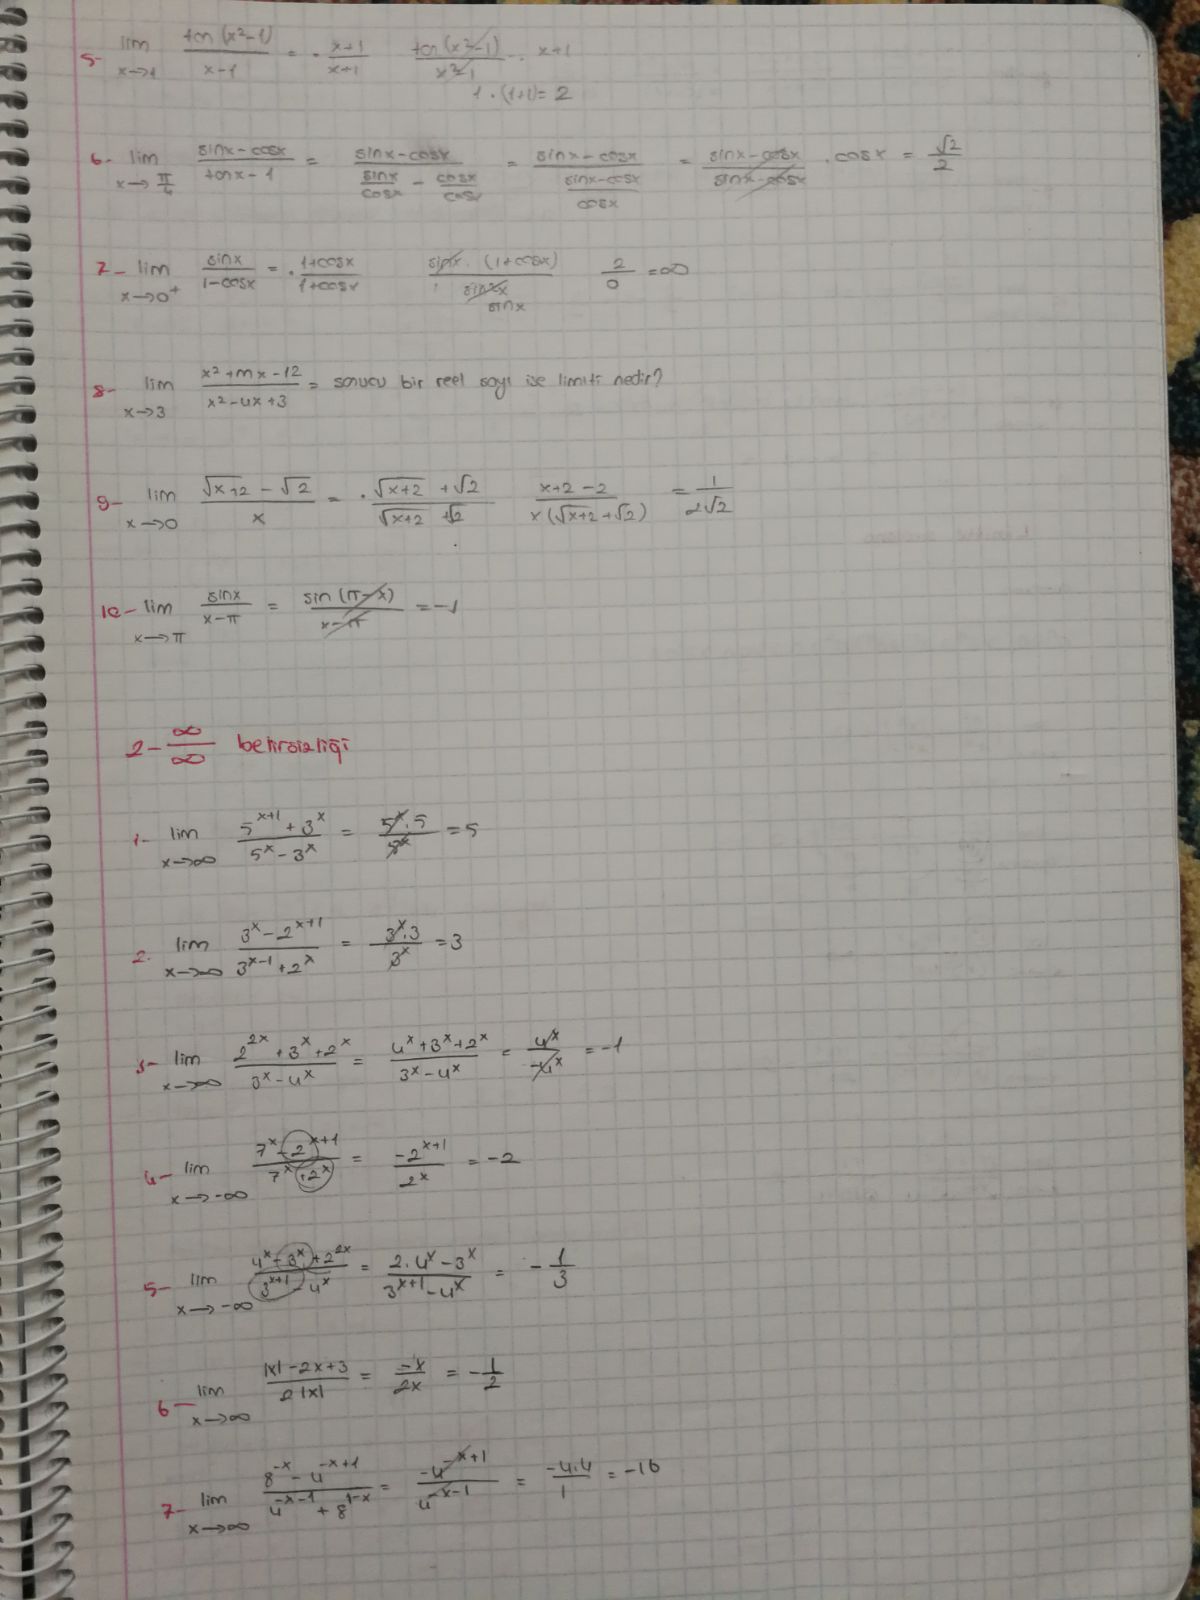 5- lim x→1 tan(x²-1)/(x-1) = · (x+1)/(x+1) tan(x²-1)/(x²-1) · x+1
1·(1+1) = 2
6- lim x→π/4 (sinx-cosx)/(tanx-1) = (sinx-cosx)/(sinx/cosx - cosx/cosx) = (sinx-cosx)/((sinx-cosx)/cosx) = (sinx-cosx)/(sinx-cosx) · cosx = √2/2
7- lim x→0⁺ sinx/(1-cosx) = · (1+cosx)/(1+cosx) sinx·(1+cosx)/sin²x sinx 2/0 = ∞
8- lim x→3 (x²+mx-12)/(x²-4x+3) = sonucu bir reel sayı ise limiti nedir?
9- lim x→0 (√(x+2) - √2)/x = · (√(x+2) + √2)/(√(x+2) + √2) (x+2-2)/(x(√(x+2)+√2)) = 1/(2√2)
10- lim x→π sinx/(x-π) = sin(π-x)/(x-π) = -1
2- ∞/∞ belirsizliği
1- lim x→∞ (5^(x+1) + 3^x)/(5^x - 3^x) = (5^x·5)/5^x = 5
2. lim x→∞ (3^x - 2^(x+1))/(3^(x-1) + 2^x) = (3^x·3)/3^x = 3
3- lim x→∞ (2^(2x) + 3^x + 2^x)/(3^x - 4^x) = (4^x + 3^x + 2^x)/(3^x - 4^x) = 4^x/-4^x = -1
4- lim x→-∞ (7^x - 2^(x+1))/(7^x + 2^x) = -2^(x+1)/2^x = -2
5- lim x→-∞ (4^x - 3^x + 2^(2x))/(3^(x+1) - 4^x) = (2·4^x - 3^x)/(3^(x+1) - 4^x) = -1/3
6- lim x→∞ (|x| - 2x + 3)/(2|x|) = -x/2x = -1/2
7- lim x→∞ (8^(-x) - 4^(-x+1))/(4^(-x-1) + 8^(1-x)) = -4^(-x+1)/4^(-x-1) = -4·4/1 = -16